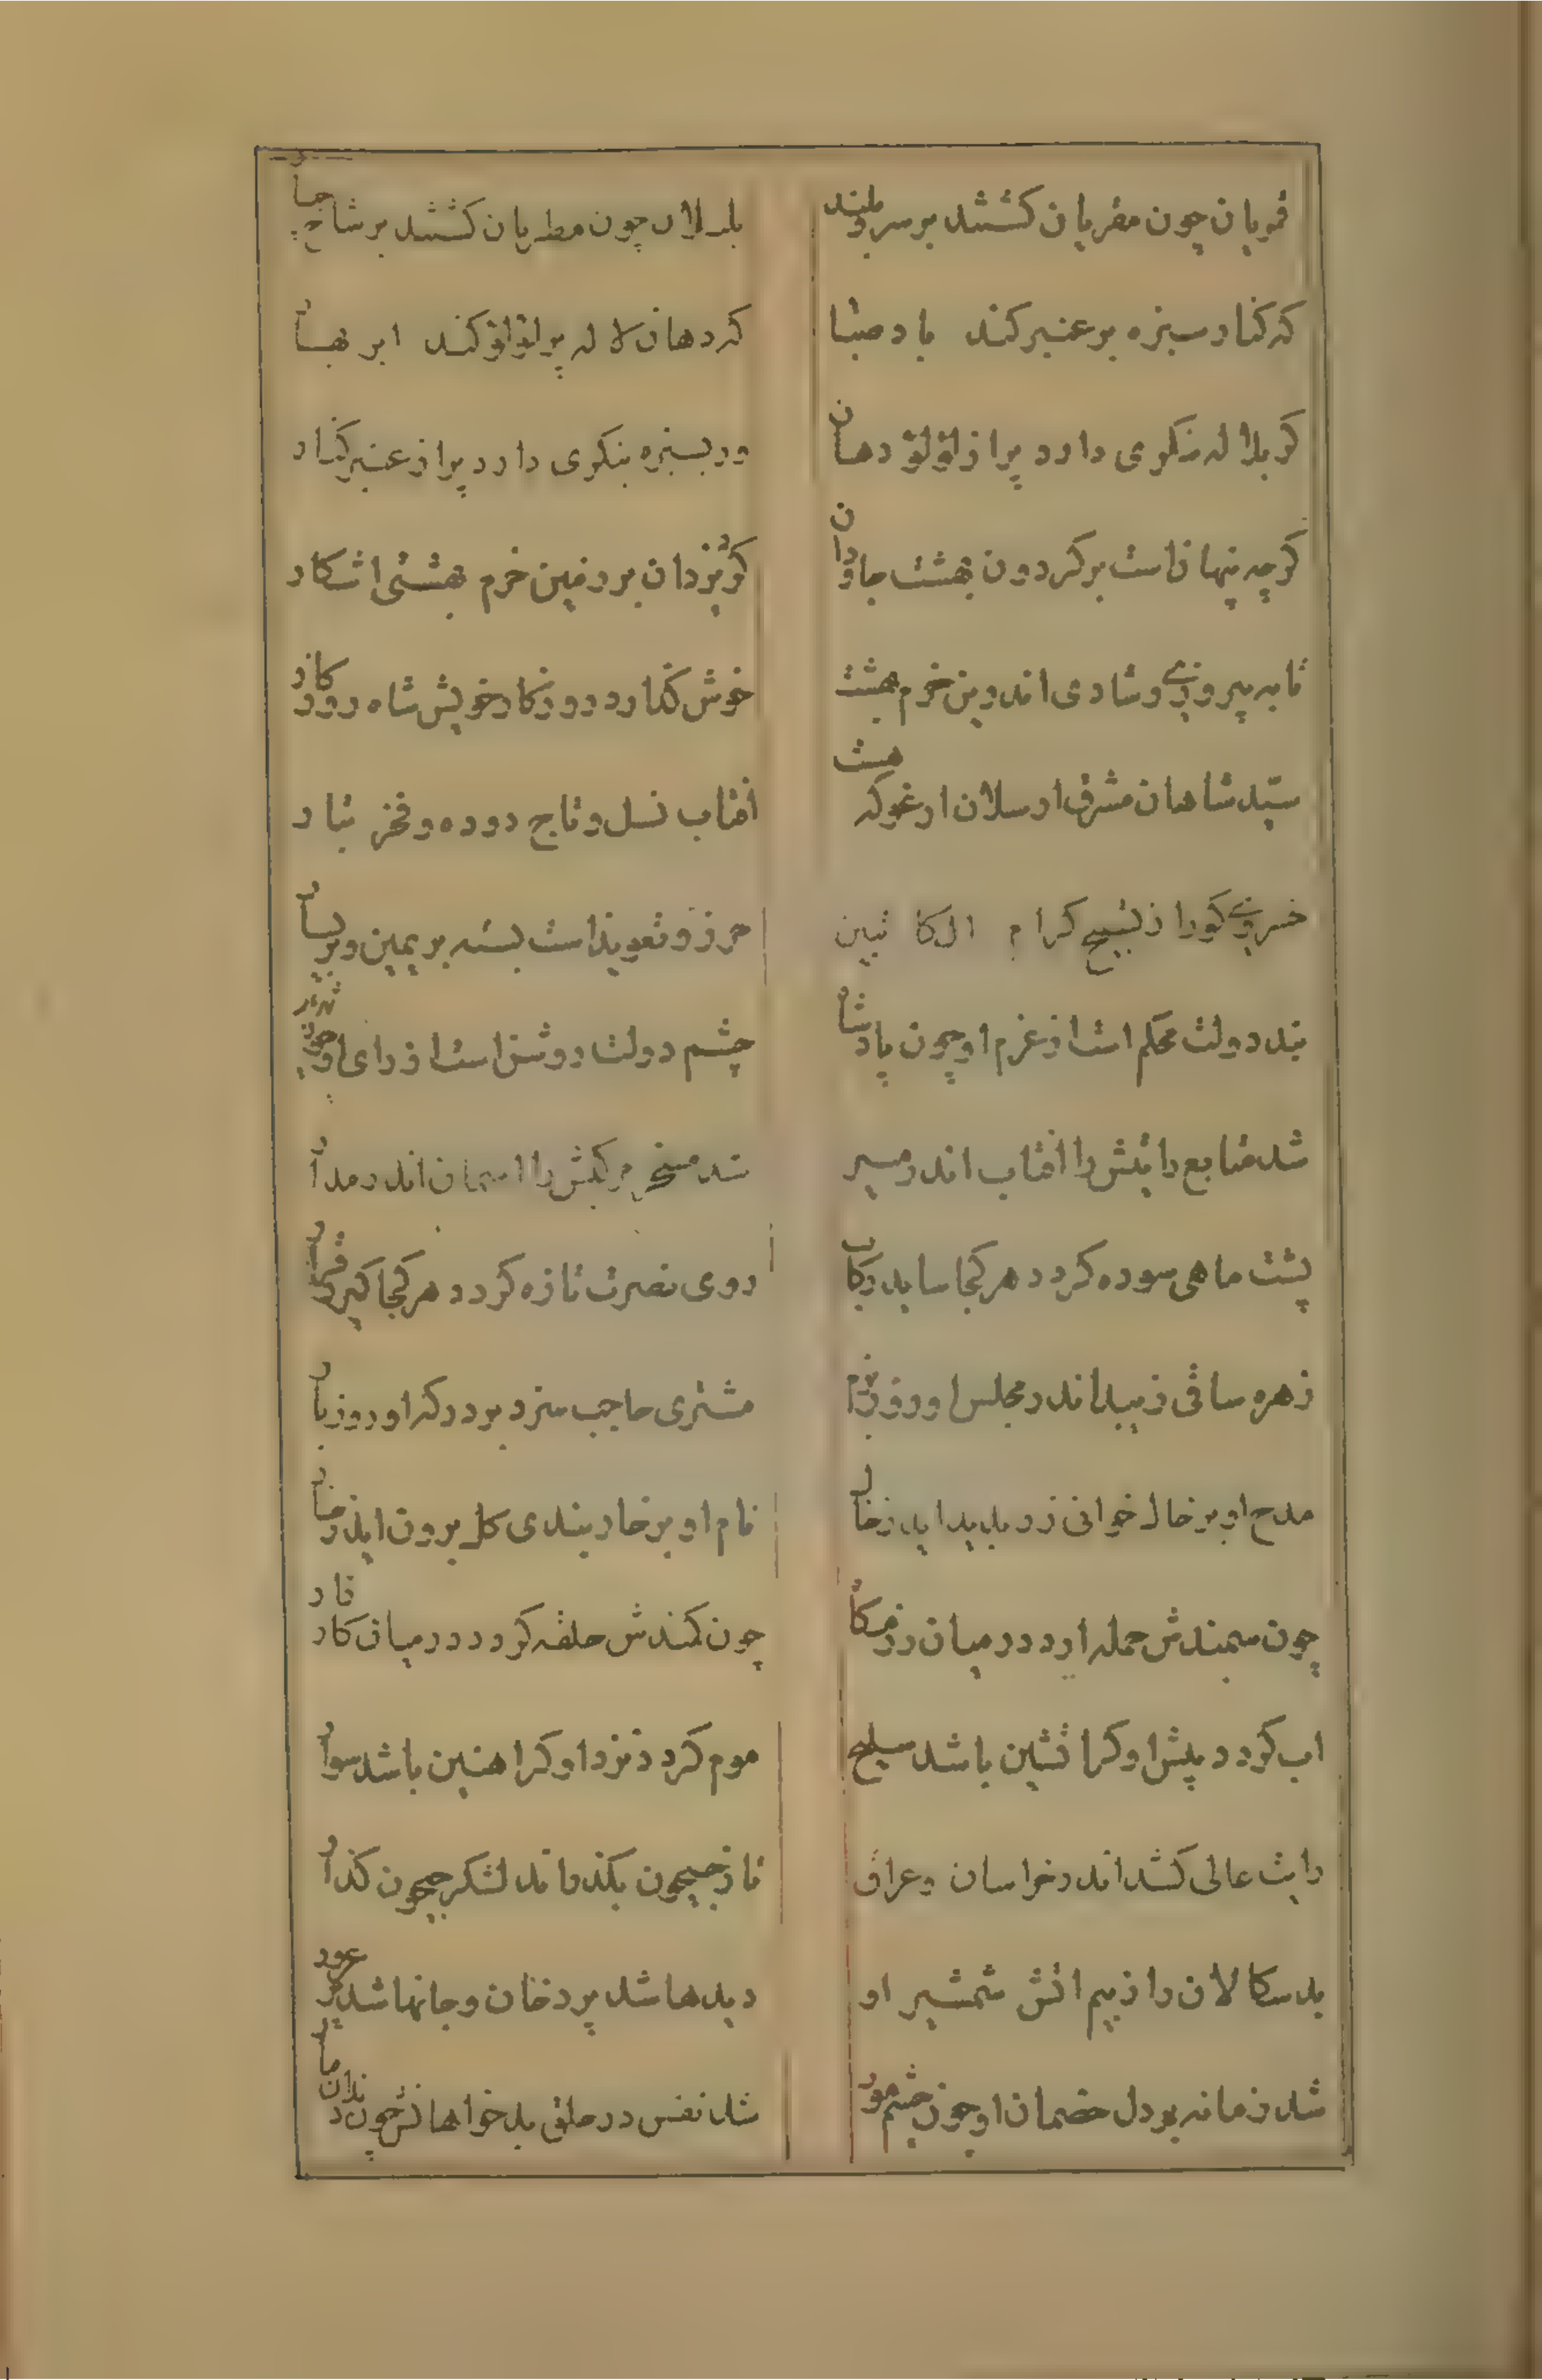 قمریان چون مقریان کشتند بر سرو بلند
بلبلان چون مطربان کشتند بر شاخ چنار
که کنار سبزه پر عنبر کند باد صبا
که دهان لاله پر لؤلؤ کند ابر بهار
کر بلاله بنکری دارد پر از لؤلؤ دهان
ور بسبزه بنکری دارد پر از عنبر کنار
کرچه پنهانست بر کردون بهشت جاودان
کرد یزدان بر زمین خرم بهشتی اشکار
تا به پیروزی و شادی اندرین خرم بهشت
خوش کذارد روزکار خویش شاه روزکار
سید شاهان مشرق ارسلان ارغو که هست
افتاب نسل و تاج دوده و فخر تبار
خسروی کورا ز تسبیح کرام الکاتبین
حرز و تعویذ است بسته بر یمین و بر یسار
بند دولت محکم است از عزم او چون پادشاه
چشم دولت روشن است از رای او چون شهریار
شد متابع رایتش را افتاب اندر مسیر
شد مسخر مرکبش را اسمان اندر مدار
پشت ماهی سوده کردد هر کجا ساید رکاب
روی نصرت تازه کردد هر کجا کیرد قرار
زهره ساقی زیبد اندر مجلس او روز بزم
مشتری حاجب سزد بر درکه او روز بار
مدح او بر خاک خوانی زر پدید اید ز خاک
نام او بر خار بندی کل برون اید ز خار
چون سمندش حمله ارد در میان رزمکاه
چون کمندش حلقه کردد در میان کارزار
اب کردد پیش او کر اتشین باشد سلیح
موم کردد نزد او کر اهنین باشد سوار
رایت عالی کشد اندر خراسان و عراق
تا ز جیحون بکذراند لشکر جیحون کذار
بدسکالان را ز بیم اتش شمشیر او
دیدها شد پر دخان و جانها شد پر
شد زمانه بر دل خصمان او چون چشم مور
شد نفس در حلق بدخواهانش چون دندان مار